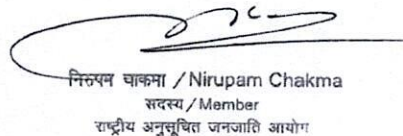 निरुपम चाकमा / Nirupam Chakma
सदस्य / Member
राष्ट्रीय अनुसूचित जनजाति आयोग